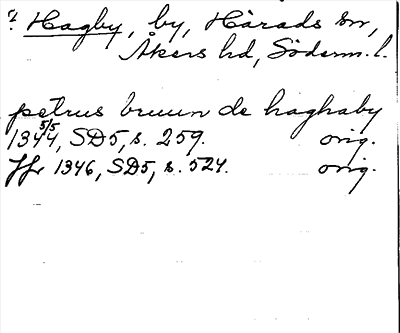 ? Hagby, by, Härads sn,
Åkers hd, Söderm. l.
petrus bruun de haghaby
1344 5/5, SD5, s. 259. orig.
Jfr 1346, SD5, s. 524. orig.